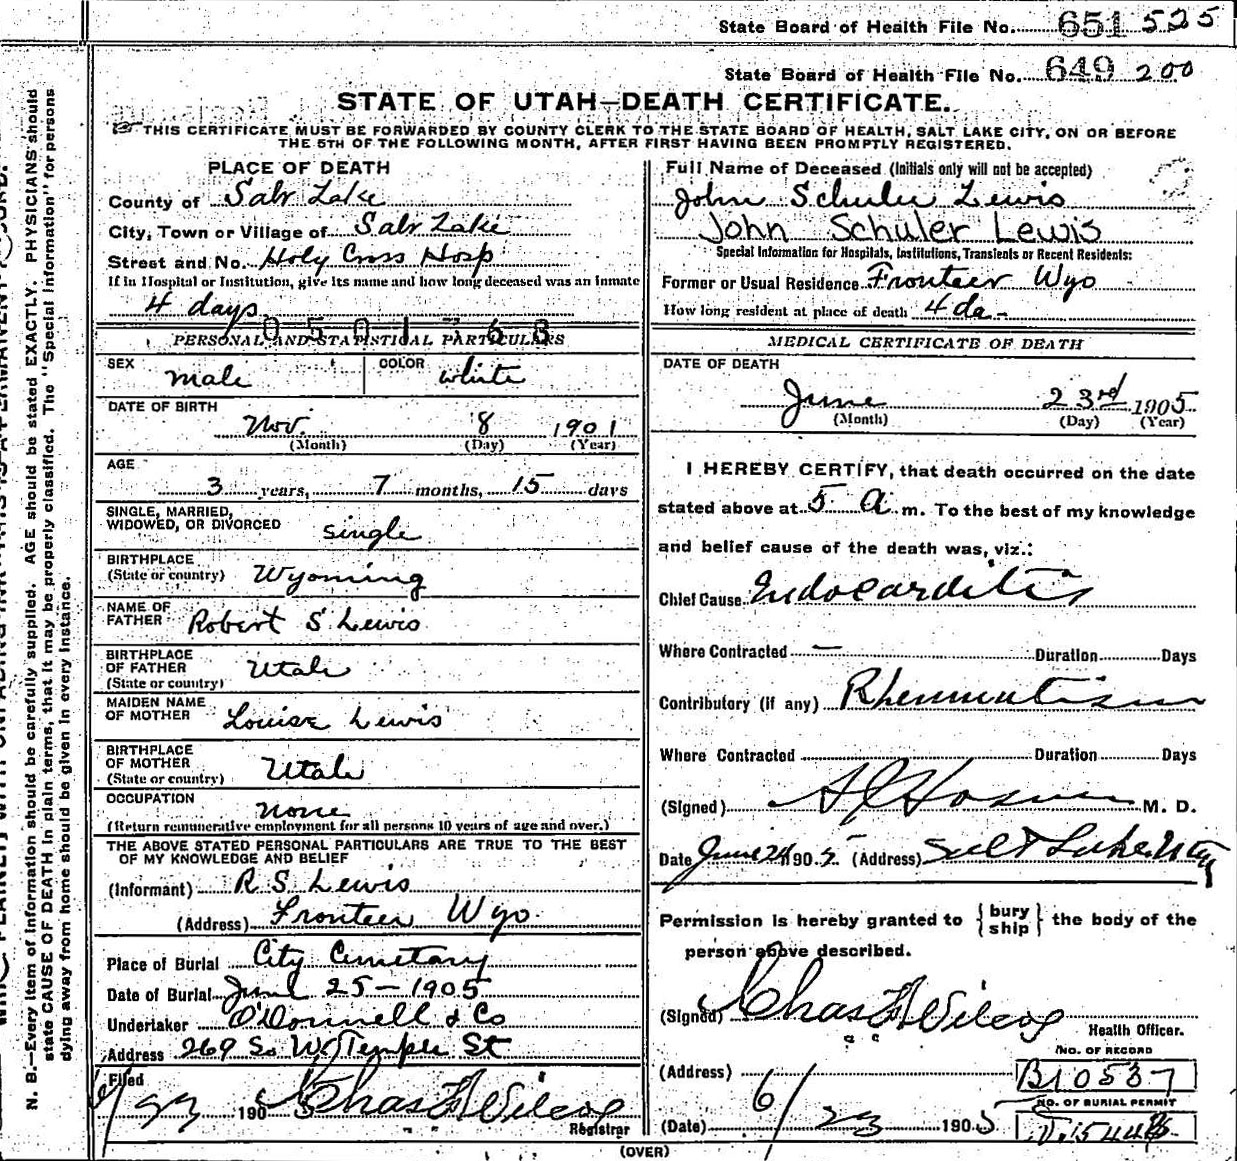 State Board of Health File No. 651 525
State Board of Health File No. 649 200
STATE OF UTAH—DEATH CERTIFICATE.
☞ THIS CERTIFICATE MUST BE FORWARDED BY COUNTY CLERK TO THE STATE BOARD OF HEALTH, SALT LAKE CITY, ON OR BEFORE
THE 5TH OF THE FOLLOWING MONTH, AFTER FIRST HAVING BEEN PROMPTLY REGISTERED.
PLACE OF DEATH
County of Salt Lake
City, Town or Village of Salt Lake
Street and No. Holy Cross Hosp
If in Hospital or Institution, give its name and how long deceased was an inmate
4 days
0501768
PERSONAL AND STATISTICAL PARTICULARS
SEX male COLOR white
DATE OF BIRTH
Nov. 8 1901
(Month) (Day) (Year)
AGE
3 years, 7 months, 15 days
SINGLE, MARRIED,
WIDOWED, OR DIVORCED single
BIRTHPLACE
(State or country) Wyoming
NAME OF
FATHER Robert S Lewis
BIRTHPLACE
OF FATHER
(State or country) Utah
MAIDEN NAME
OF MOTHER Louise Lewis
BIRTHPLACE
OF MOTHER
(State or country) Utah
OCCUPATION none
(Return remunerative employment for all persons 10 years of age and over.)
THE ABOVE STATED PERSONAL PARTICULARS ARE TRUE TO THE BEST
OF MY KNOWLEDGE AND BELIEF
(Informant) R S Lewis
(Address) Fronteer Wyo.
Place of Burial City Cemetary
Date of Burial June 25-1905
Undertaker O'Donnell & Co
Address 269 So W Temple St
Filed
6/23 1905 Chas Wilcox
Registrar
Full Name of Deceased (Initials only will not be accepted)
John Schuler Lewis
John Schuler Lewis
Special Information for Hospitals, Institutions, Transients or Recent Residents:
Former or Usual Residence Fronteer Wyo
How long resident at place of death 4 da-
MEDICAL CERTIFICATE OF DEATH
DATE OF DEATH
June 23rd 1905
(Month) (Day) (Year)
I HEREBY CERTIFY, that death occurred on the date
stated above at 5 a. m. To the best of my knowledge
and belief cause of the death was, viz.:
Chief Cause Endocarditis
Where Contracted — Duration Days
Contributory (if any) Rheumatism
Where Contracted Duration Days
(Signed) M. D.
Date June 24 1905 (Address) Salt Lake Utah
Permission is hereby granted to { bury
ship } the body of the
person above described.
(Signed) Chas Wilcox
Health Officer.
(Address)
(Date) 6/23 1905
NO. OF RECORD
B10537
NO. OF BURIAL PERMIT
(OVER)
N. B.—Every item of information should be carefully supplied. AGE should be stated EXACTLY. PHYSICIANS should
state CAUSE OF DEATH in plain terms, that it may be properly classified. The "Special Information" for persons
dying away from home should be given in every instance.